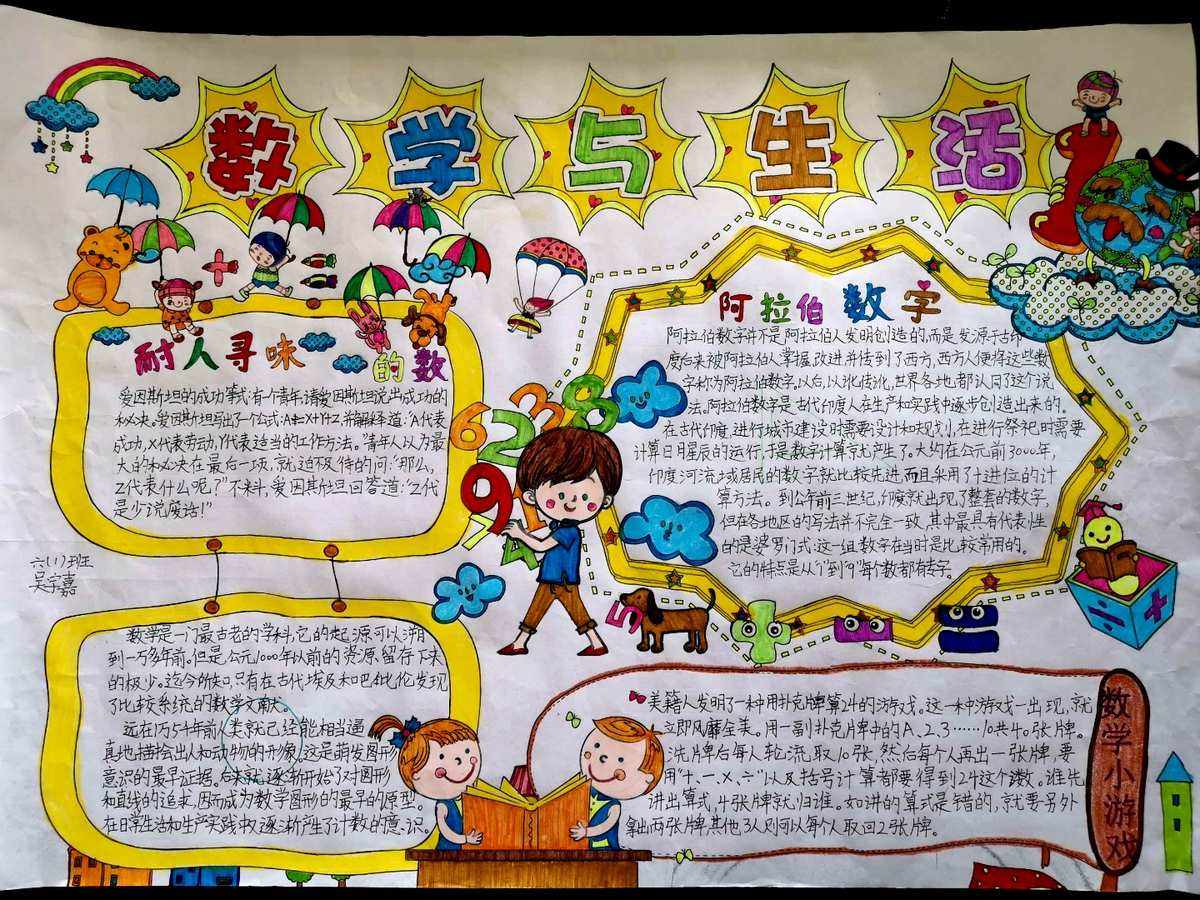 数学与生活
耐人寻味的数
爱因斯坦的成功等式:有个青年,请爱因斯坦说出成功的
秘决。爱因斯坦写出了个公式:A=X+Y+Z,并解释道:"A代表
成功,X代表劳动,Y代表适当的工作方法。"青年人以为最
大的秘决在最后一项,就迫不及待的问:"那么,
Z代表什么呢?"不料,爱因斯坦回答道:"Z代
是少说废话!"
六(1)班
吴宇嘉
数学是一门最古老的学科,它的起源可以溯
到一万多年前。但是公元1000年以前的资源留存下来
的极少。迄今所知,只有在古代埃及和巴比伦发现
了比较系统的数学文献。
远在1万5千年前人类就已经能相当逼
真地描绘出人和动物的形象。这是萌发图形
意识的最早证据。后来就逐渐开始了对圆形
和直线的追求,因而成为数学图形的最早的原型。
在日常生活和生产实践中又逐渐产生了计数的意识。
阿拉伯数字
阿拉伯数字并不是阿拉伯人发明创造的,而是发源于古印
度后来被阿拉伯人掌握,改进并传到了西方,西方人便将这些数
字称为阿拉伯数字,以后,以讹传讹,世界各地,都认同了这个说
法。阿拉伯数字是古代印度人在生产和实践中逐步创造出来的。
在古代印度,进行城市建设时需要设计和规划,在进行祭祀时需要
计算日月星辰的运行,于是数字计算就产生了。大约在公元前3000年,
印度河流域居民的数字就比较先进,而且采用了十进位的计
算方法。到公年前三世纪,印度就出现了整套的数字,
但在各地区的写法并不完全一致,其中最具有代表性
的是婆罗门式:这一组数字在当时是比较常用的。
它的特点是从"1"到"9"每个数都有专字。
6 2 3 8
9 1
7 4
5
数学小游戏
美籍人发明了一种用扑克牌算24的游戏。这一种游戏一出现,就
立即风靡全美。用一副扑克牌中的A、2、3……10共40张牌。
洗牌后每人轮流取10张,然后每个人再出一张牌,要
用"+、一、X、÷"以及括号计算都要得到24这个数。谁先
讲出算式,4张牌就归谁。如讲的算式是错的,就要另外
拿出两张牌,其他3人则可以每个人取回2张牌。